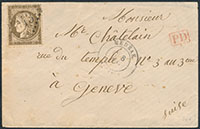 Monsieur
Mr Chatelain
rue du temple No 3 au 3me
à Geneve
Suise
PD